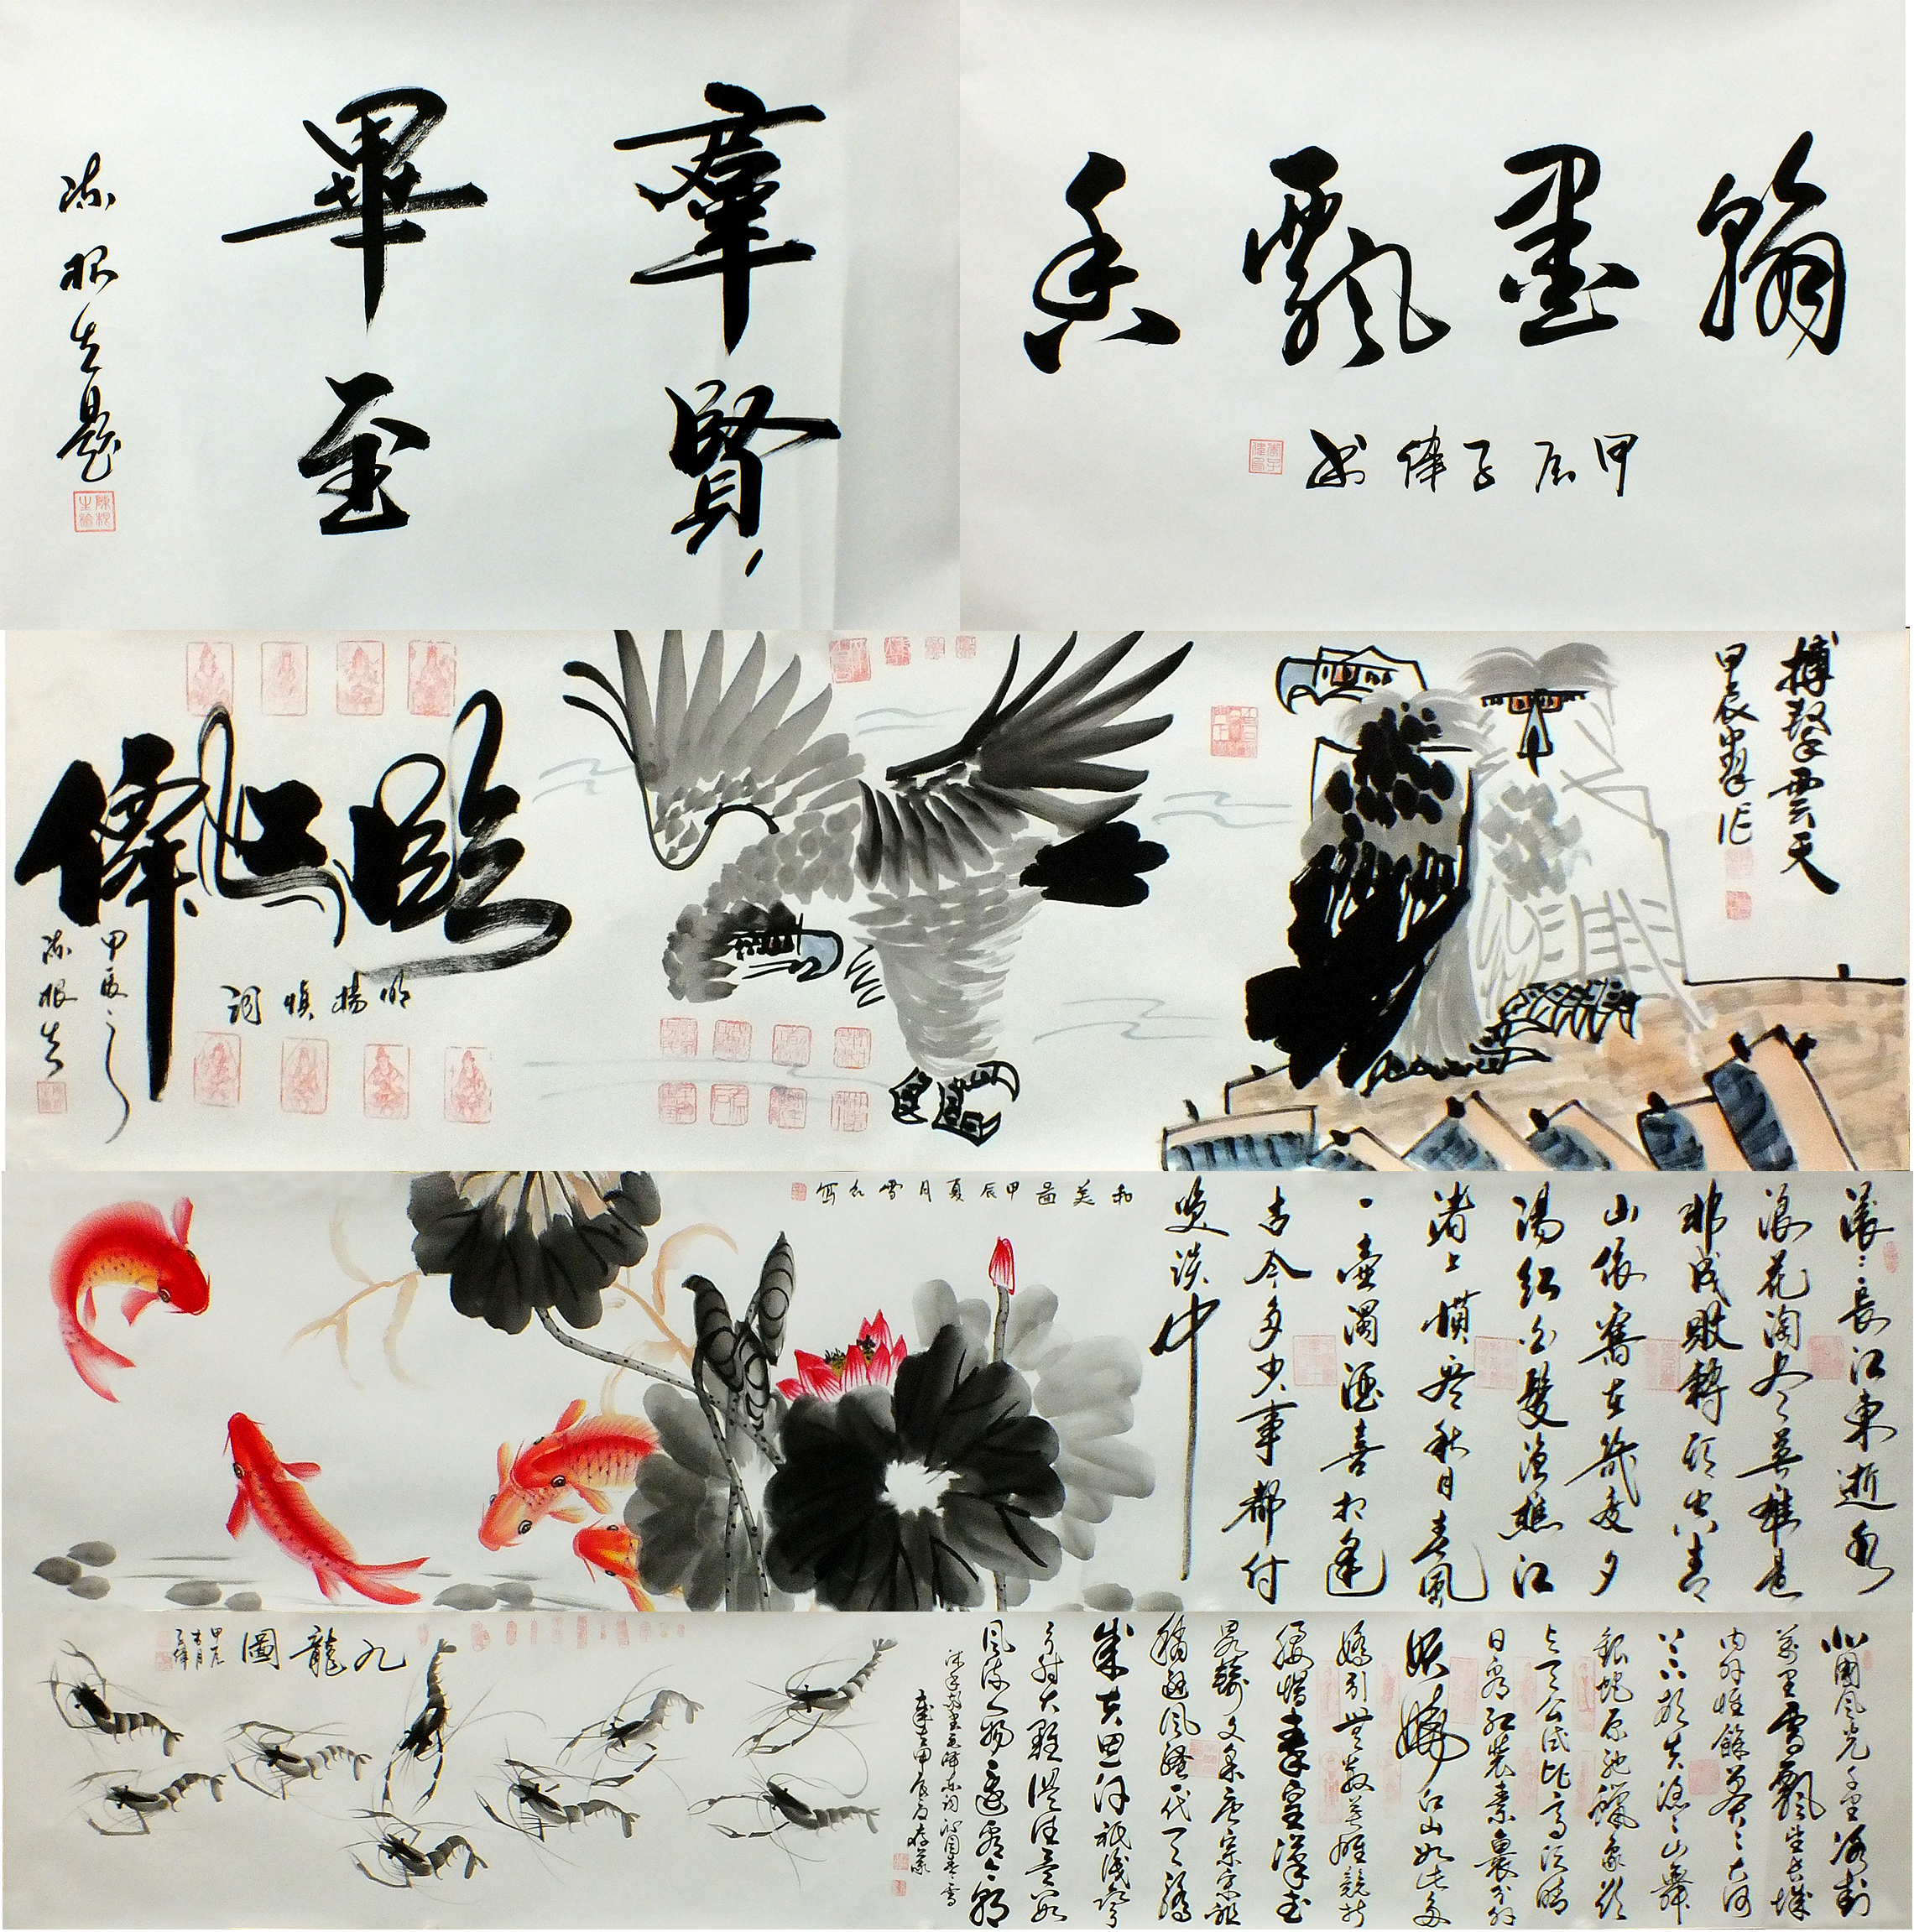 羣賢
畢至
陈根生題
翰墨飄香
甲辰子偉书
搏擊雲天
甲辰
臨江僊
明楊慎词
甲辰之
陈根生
和美圖甲辰夏月雪
滚:長江東逝水
浪花淘尽英雄是
非成败轉頭空青
山依舊在幾度夕
陽红白髮漁樵江
渚上慣看秋月春風
一壺濁酒喜相逢
古今多少事都付
笑談中
北國風光千里冰封
萬里雪飄望長城
内外惟餘莽:大河
上下頓失滔:山舞
銀蛇原馳蠟象欲
与天公试比高須晴
日看红装素裹分外
妖嬈江山如此多
嬌引無數英雄競折
腰惜秦皇漢武
略輸文采唐宗宋祖
稍遜風騷一代天驕
成吉思汗祇識彎
弓射大雕俱往矣数
風流人物還看今朝
沐手敬書毛泽东词沁园春雪
歲在甲辰夏
九龍圖